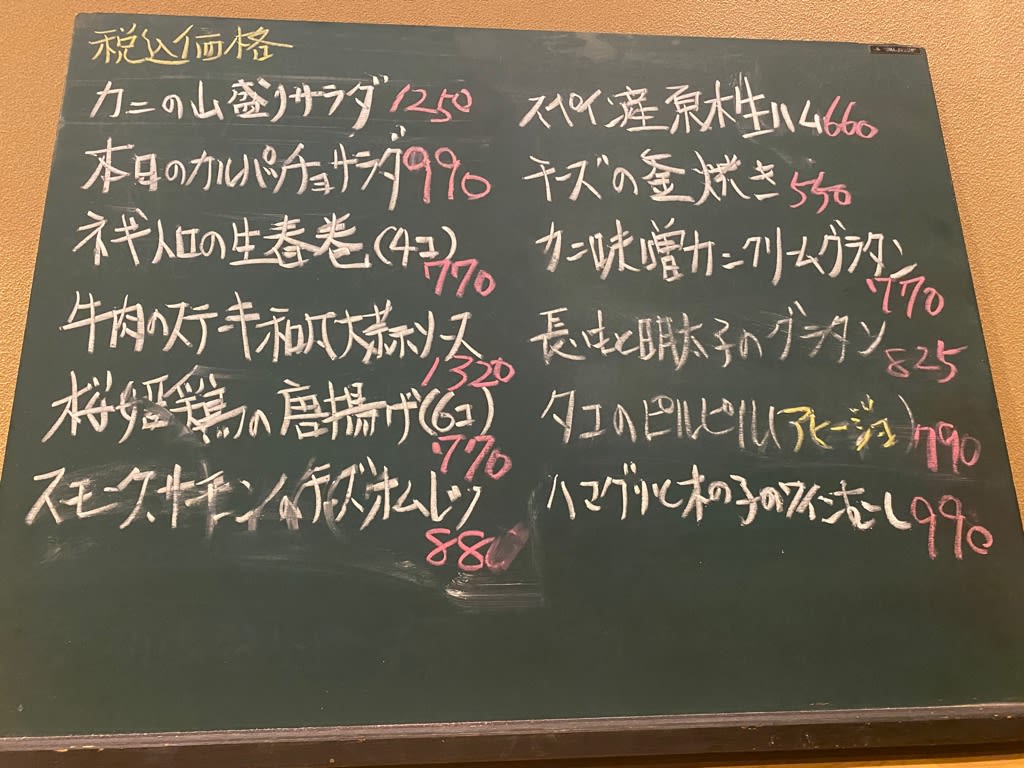 税込価格
カニの山盛りサラダ 1250
本日のカルパッチョサラダ 990
ネギトロの生春巻(4コ)
770
牛肉のステーキ和風大葉ソース
1320
桜姫鶏の唐揚げ(6コ)
770
スモークサーモンのチーズオムレツ
880
スペイン産原木生ハム 660
チーズの釜焼き 550
カニ味噌カニクリームグラタン
770
長いもと明太子のグラタン
825
タコのピルピル(アヒージョ) 790
ハマグリと木の子のワイン蒸し 990